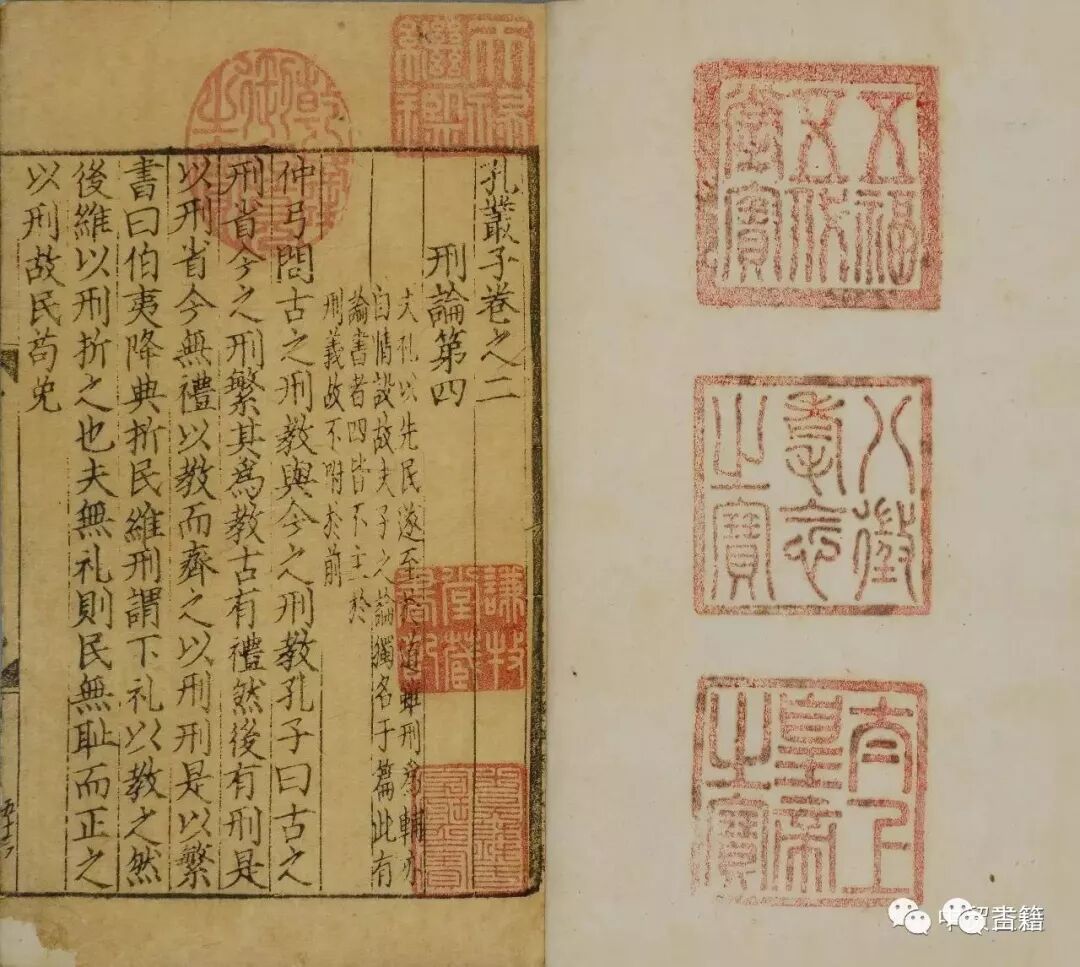 五福五代堂寶
八徵耄念之寶
太上皇帝之寶
天祿繼鑑
乾隆御覽之寶
孔叢子卷之二
刑論第四
夫孔以先民遂至於道雖刑爲輔亦
情設故夫子之論獨名于篇此有
論書者四皆不主於
刑義故不附於前
仲弓問古之刑教與今之刑教孔子曰古之
刑省今之刑繁其爲教古有禮然後有刑是
以刑省今無禮以教而齊之以刑刑是以繁
書曰伯夷降典折民維刑謂下礼以教之然
後維以刑折之也夫無礼則民無耻而正之
以刑故民苟免
謙牧堂藏書記